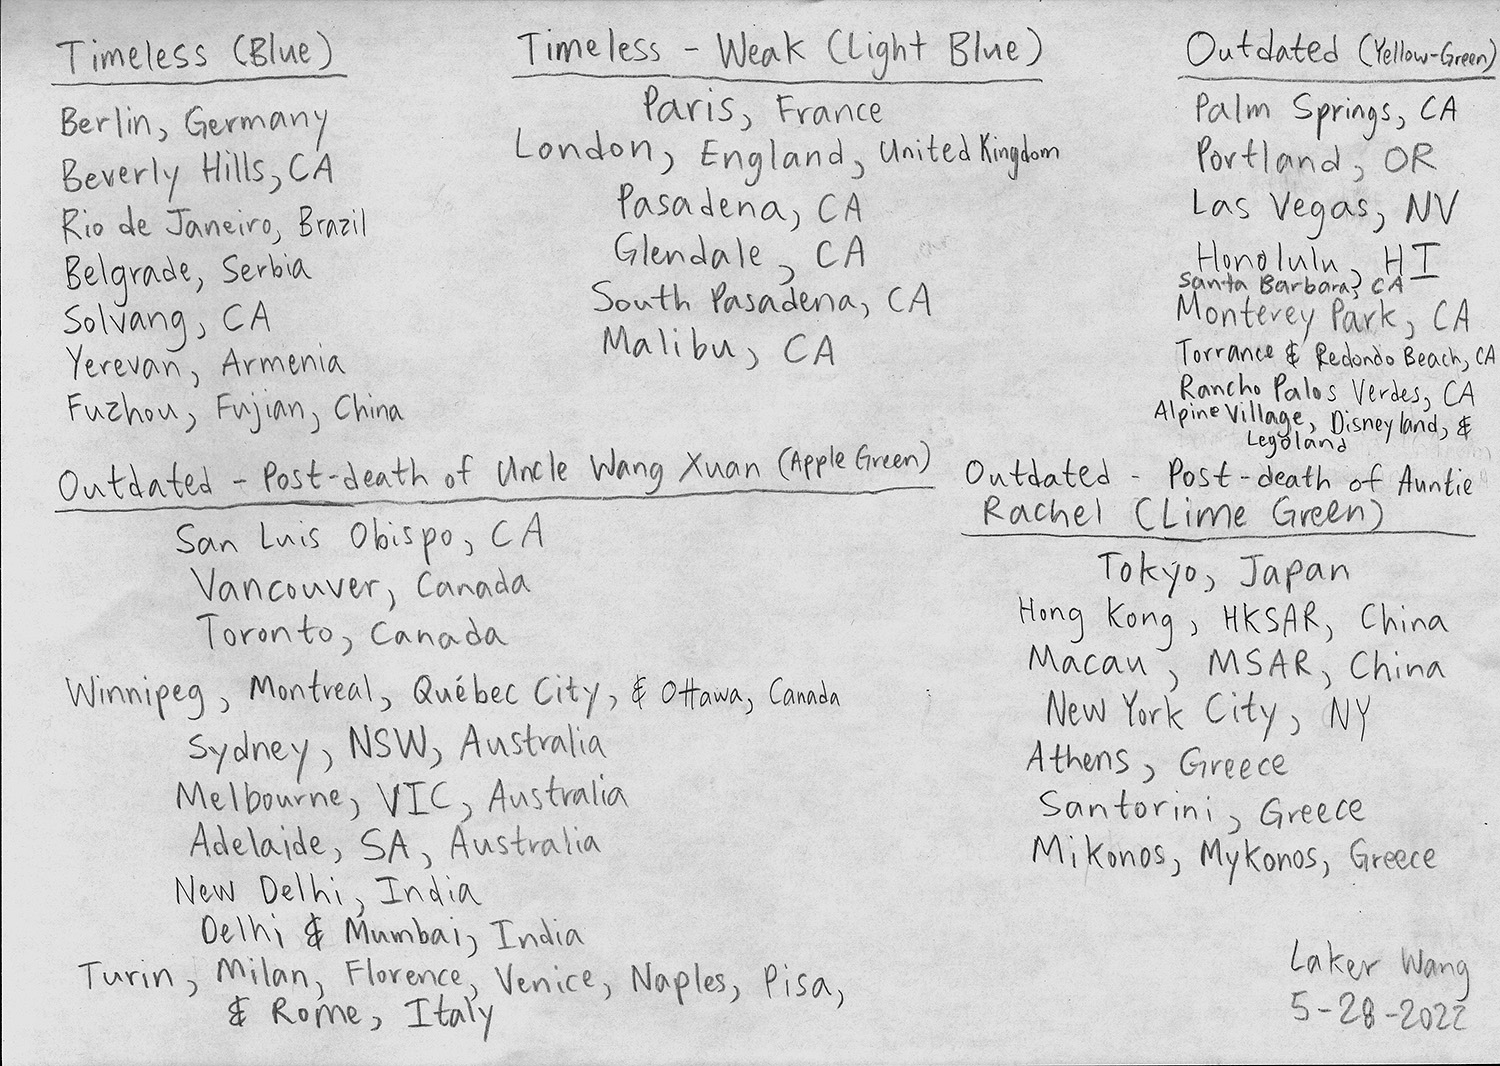 Timeless (Blue)
Berlin, Germany
Beverly Hills, CA
Rio de Janeiro, Brazil
Belgrade, Serbia
Solvang, CA
Yerevan, Armenia
Fuzhou, Fujian, China
Timeless - Weak (Light Blue)
Paris, France
London, England, United Kingdom
Pasadena, CA
Glendale, CA
South Pasadena, CA
Malibu, CA
Outdated (Yellow-Green)
Palm Springs, CA
Portland, OR
Las Vegas, NV
Honolulu, HI
Santa Barbara, CA
Monterey Park, CA
Torrance & Redondo Beach, CA
Rancho Palos Verdes, CA
Alpine Village, Disneyland, &
Legoland
Outdated - Post-death of Uncle Wang Xuan (Apple Green)
San Luis Obispo, CA
Vancouver, Canada
Toronto, Canada
Winnipeg, Montreal, Québec City, & Ottawa, Canada
Sydney, NSW, Australia
Melbourne, VIC, Australia
Adelaide, SA, Australia
New Delhi, India
Delhi & Mumbai, India
Turin, Milan, Florence, Venice, Naples, Pisa,
& Rome, Italy
Outdated - Post-death of Auntie
Rachel (Lime Green)
Tokyo, Japan
Hong Kong, HKSAR, China
Macau, MSAR, China
New York City, NY
Athens, Greece
Santorini, Greece
Mikonos, Mykonos, Greece
Laker Wang
5-28-2022